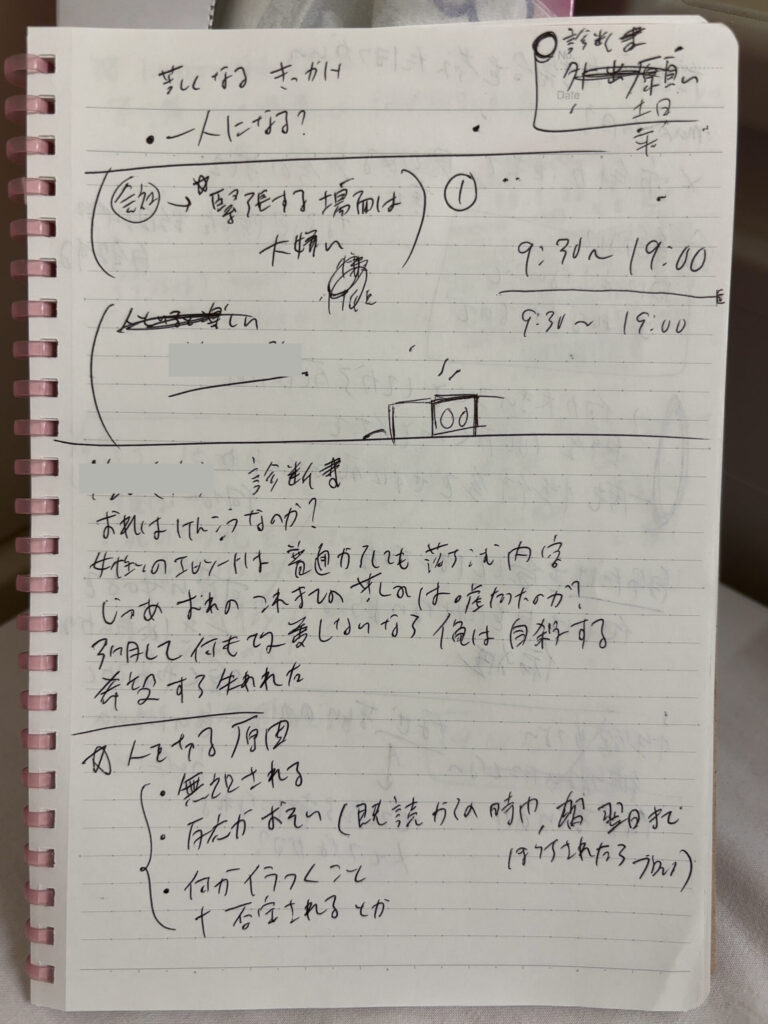 苦しくなる きっかけ
診断書
外出願い
土日
・一人になる?
会話 → 緊張する場面は
大嫌い
①
9:30〜19:00
9:30〜19:00
人といると楽しい
診断書
おれはけんこうなのか?
女性とのエピソードは 普通からしても 落ち込む内容
じゃあ おれの これまでの 苦しみは 嘘だったのか?
3ヶ月して 何も改善しないなら 俺は自殺する
希望すら失われた
人を切る原因
・無視される
・反応がおそい (既読からの時や、翌日まで
ほうちされたらブロック)
・何かイラつくこと
+ 否定されるとか